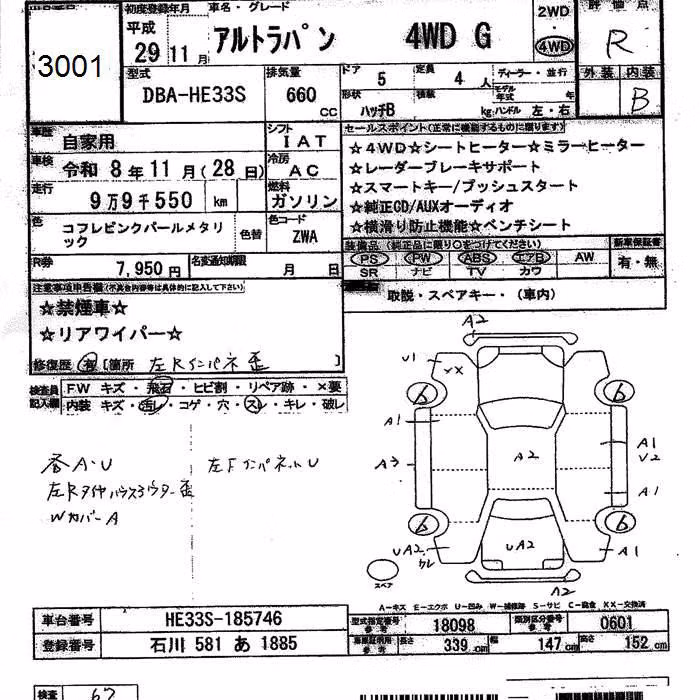 初度登録年月
車名・グレード
2WD
評価点
平成
29 11月
アルトラパン 4WD G
4WD
R
3001
型式
排気量
ドア 5
定員 4人
ディーラー・並行
外装 内装
DBA-HE33S
660 CC
形状 ハッチB
積載 kg
モデル年式 年
ハンドル 左・右
B
車歴 自家用
シフト IAT
セールスポイント(正常に機能するものに限ります)
車検 令和 8年11月(28日)
冷房 AC
☆4WD☆シートヒーター☆ミラーヒーター
☆レーダーブレーキサポート
走行 9万9千550 km
燃料 ガソリン
☆スマートキー/プッシュスタート
☆純正CD/AUXオーディオ
色 コフレピンクパールメタリック
色替
色コード ZWA
☆横滑り防止機能☆ベンチシート
装備品(純正品に限り○をつけてください)
新車保証書
R券 7,950円
名変通知期限 月 日
PS PW ABS エアB AW
有・無
SR ナビ TV カワ
注意事項申告欄(不具合内容等は具体的に記入して下さい)
取説・スペアキー・(車内)
☆禁煙車☆
☆リアワイパー☆
修復歴 有 [箇所 左Rインパネ歪 ]
検査員記入欄
FW キズ・飛石・ヒビ割・リペア跡・×要
内装 キズ・汚レ・コゲ・穴・スレ・キレ・破レ
A2
U1
XX
6
6
A1
A3
A2
A1
U2
A1
6
6
UA2
クレ
UA2
A1
A2
各A・U
左Fインパネ小U
左Rタイヤハウスアウター歪
WカバーA
スペア
A−キズ E−エクボ U−凹み W−補修跡 S−サビ C−腐食 XX−交換済
車台番号 HE33S-185746
型式指定番号 参考 18098
類別区分番号 参考 0601
登録番号 石川 581 あ 1885
長さ 339 cm
幅 147 cm
高さ 152 cm
検査